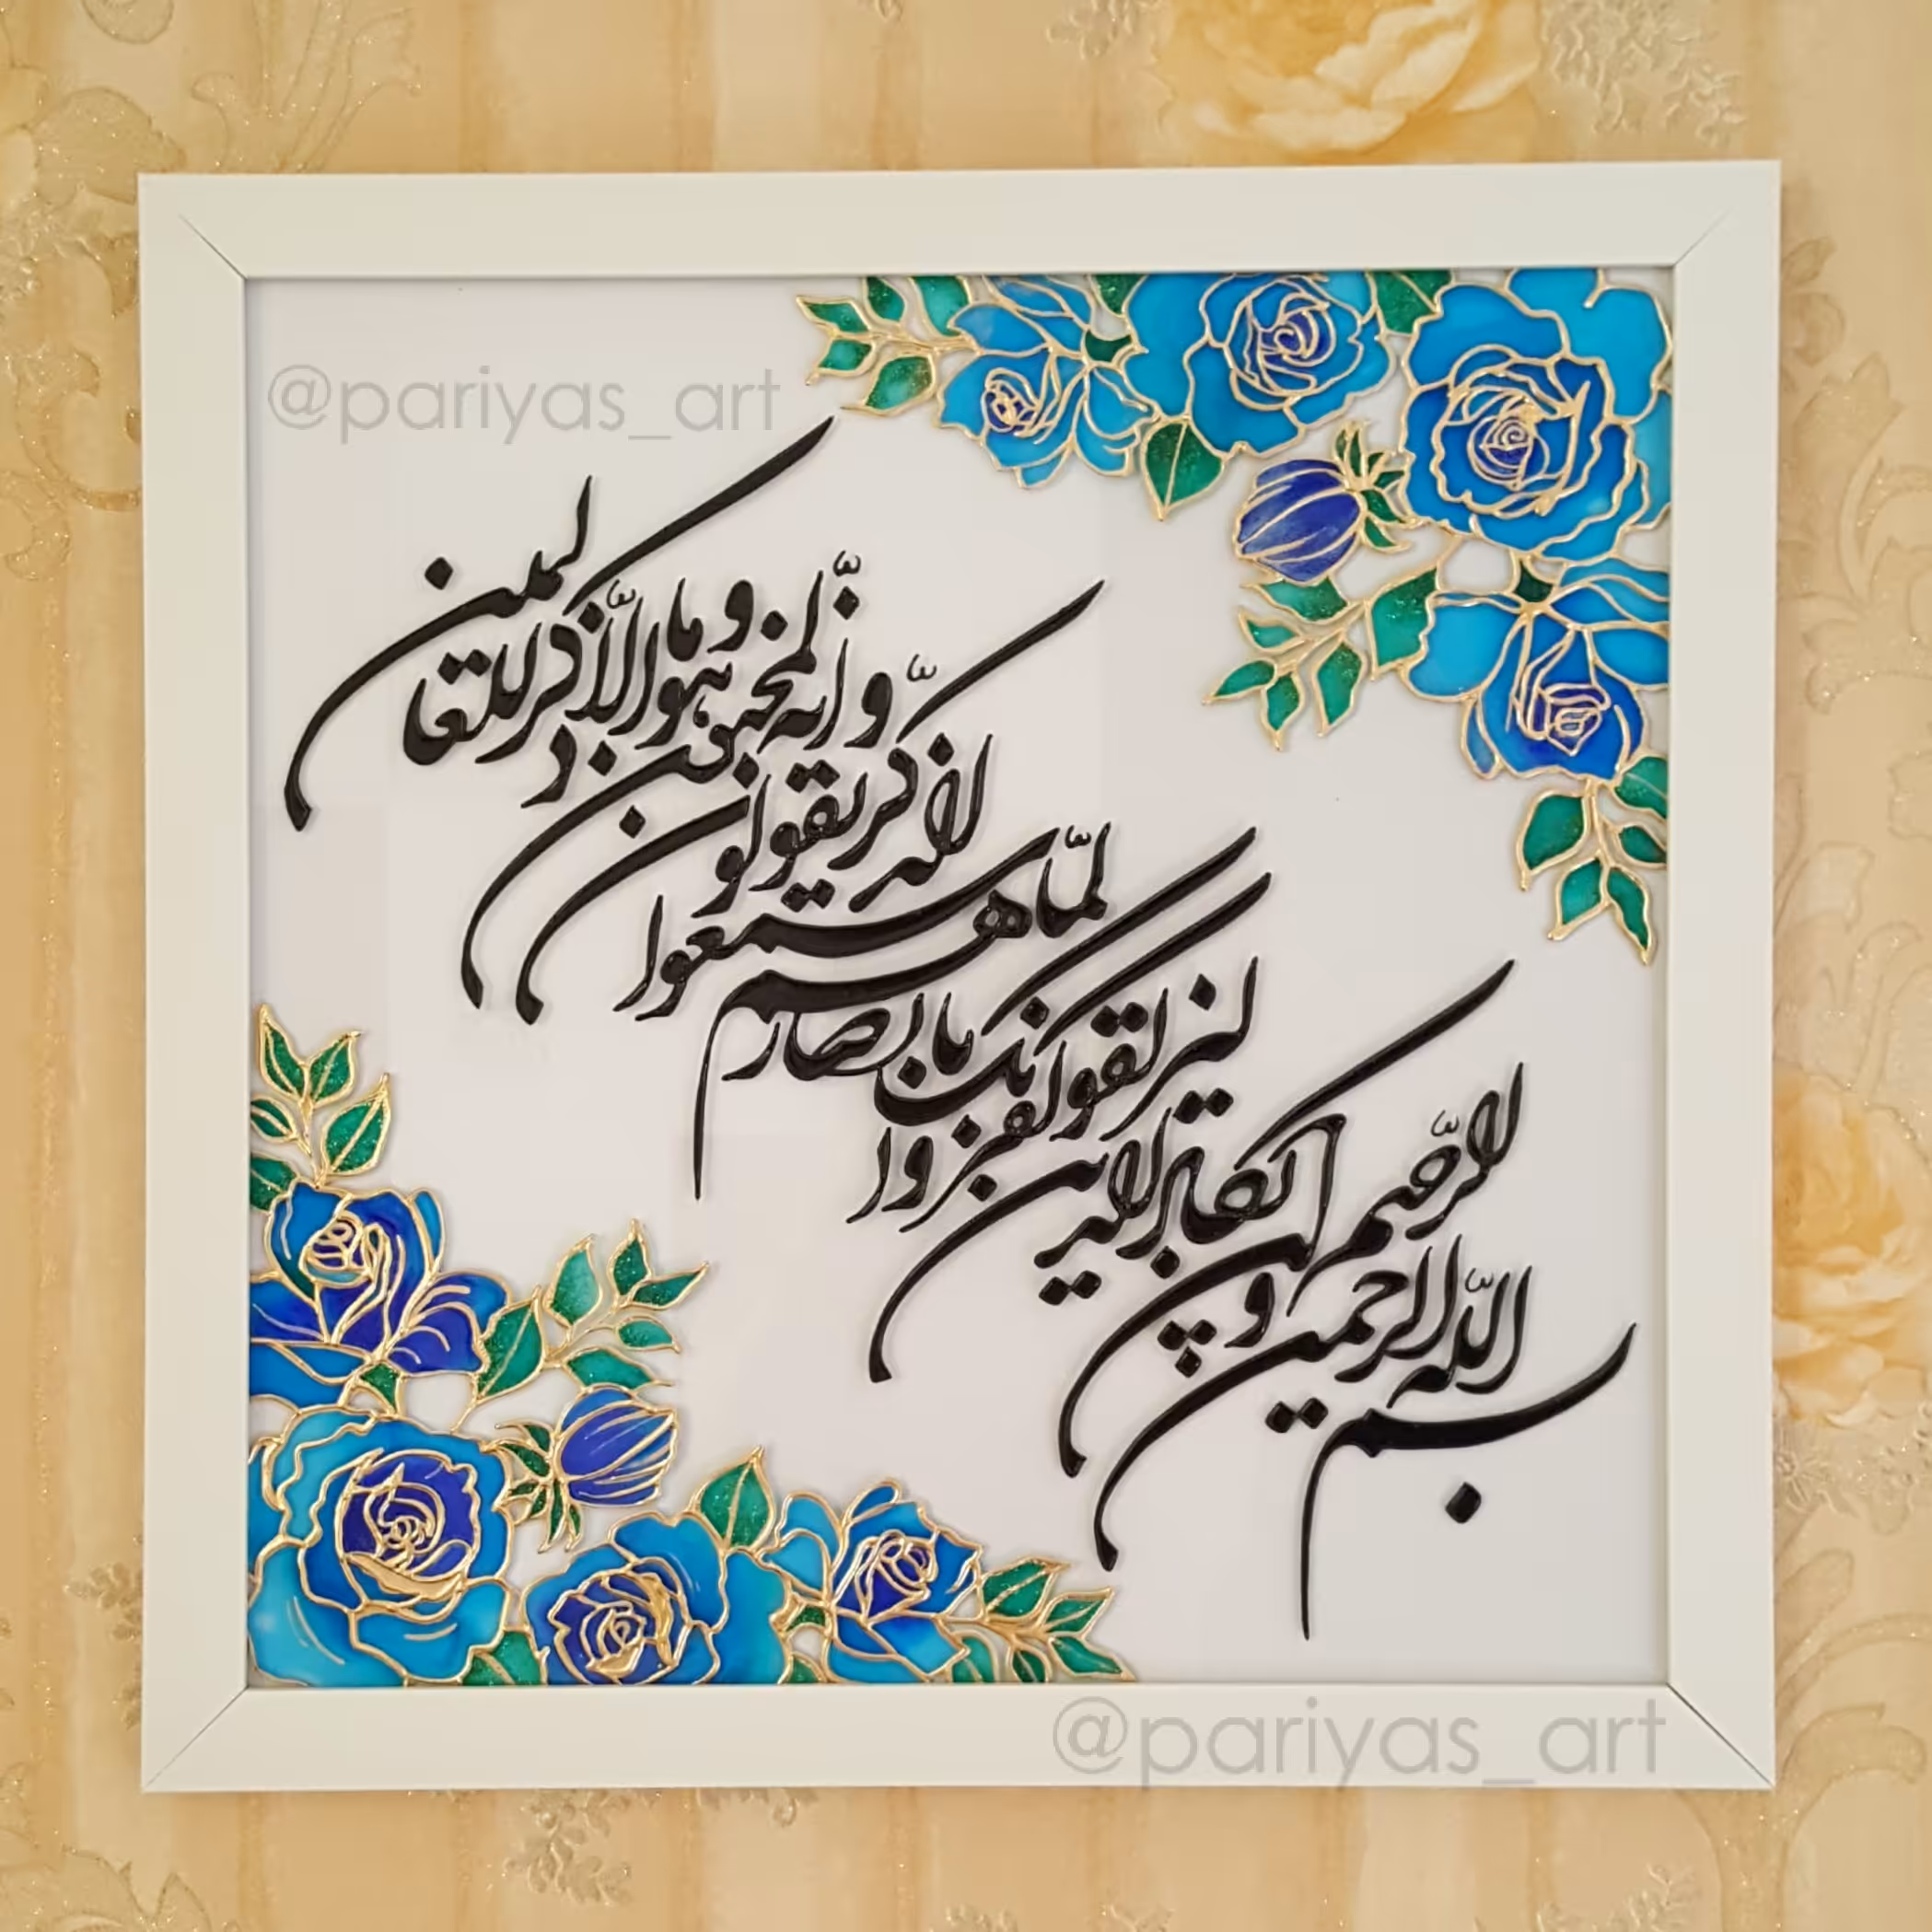 @pariyas_art
بسم الله الرحمن الرحیم
وان یکاد الذین کفروا
لیزلقونک بابصارهم
لما سمعوا الذکر
و یقولون انه لمجنون
و ما هو الا ذکر للعالمین
@pariyas_art